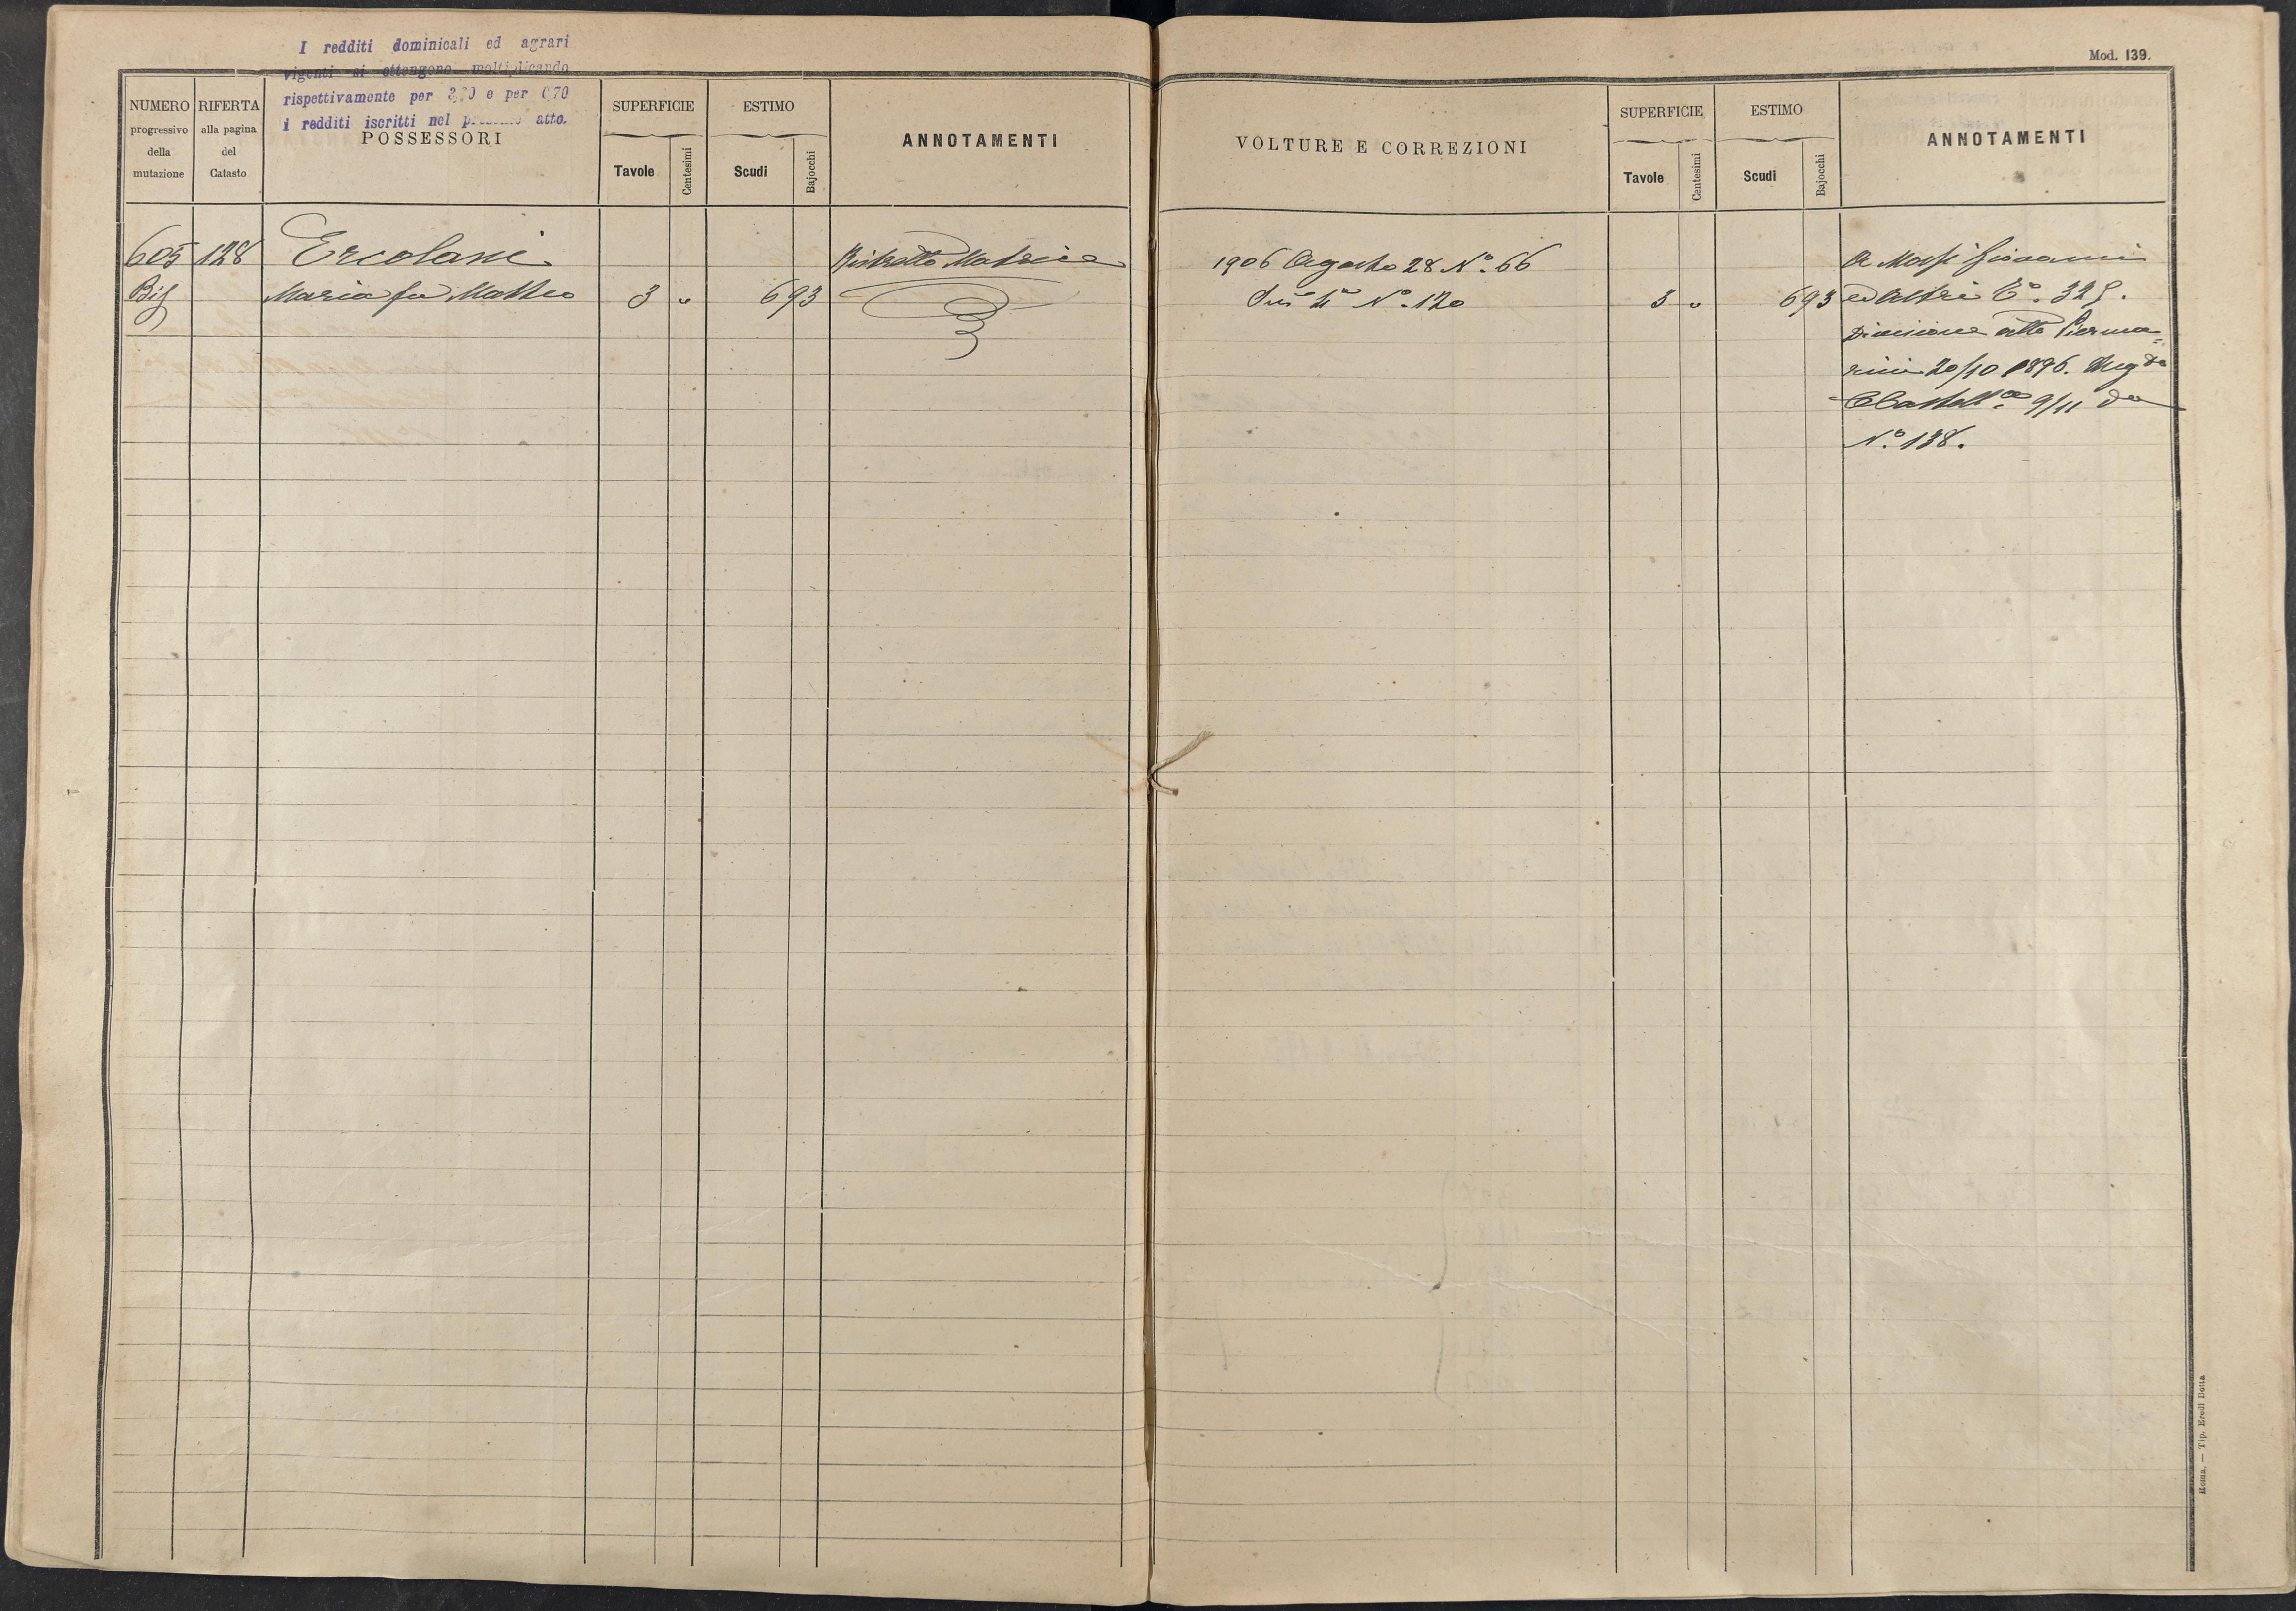 I redditi dominicali ed agrari
vigenti si ottengono moltiplicando
rispettivamente per 3,20 e per 0,70
i redditi iscritti nel presente atto.
NUMERO
progressivo
della
mutazione
RIFERTA
alla pagina
del
Catasto
POSSESSORI
SUPERFICIE
Tavole
Centesimi
ESTIMO
Scudi
Bajocchi
ANNOTAMENTI
605 128 Ercolani Ristretto Matrice
Bis Maria fu Matteo 3 " 6 93
Mod. 139.
VOLTURE E CORREZIONI
SUPERFICIE
Tavole
Centesimi
ESTIMO
Scudi
Bajocchi
ANNOTAMENTI
1906 Agosto 28 N° 66 A Masi Giovanni
N° 120 3 " 6 93 ed Altri
Divisione atto Pierma=
rini 20/10 1896.
9/11
N° 138.
Roma. — Tip. Eredi Botta